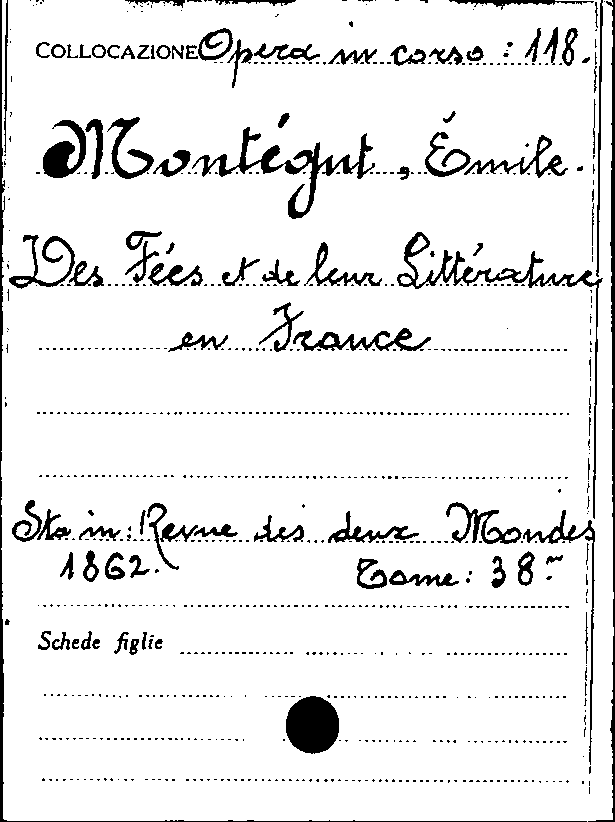 COLLOCAZIONE Opera in corso : 118.
Montégut, Émile.
Des Fées et de leur Littérature
en France
Sta in: Revue des deux Mondes
1862. Tome: 38.
Schede figlie